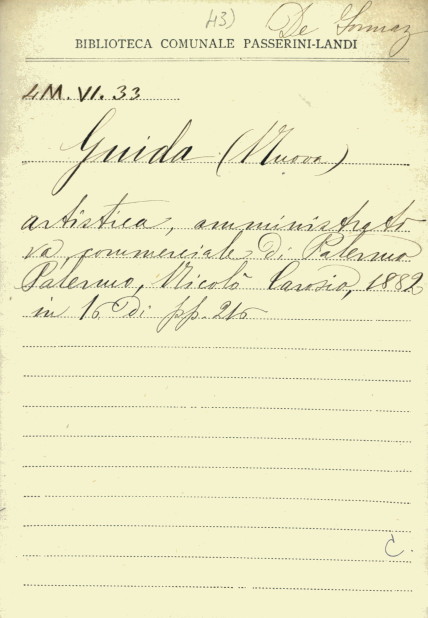 43) De
BIBLIOTECA COMUNALE PASSERINI-LANDI
4M.VI.33
Guida (Nuova)
artistica, amministrati
va, commerciale di Palermo
Palermo, Nicolò Carosio, 1882
in 16 di pp. 216
C.